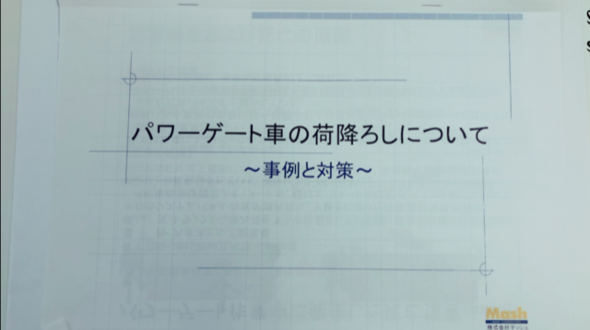 パワーゲート車の荷降ろしについて
～事例と対策～
Mash
株式会社マッシュ